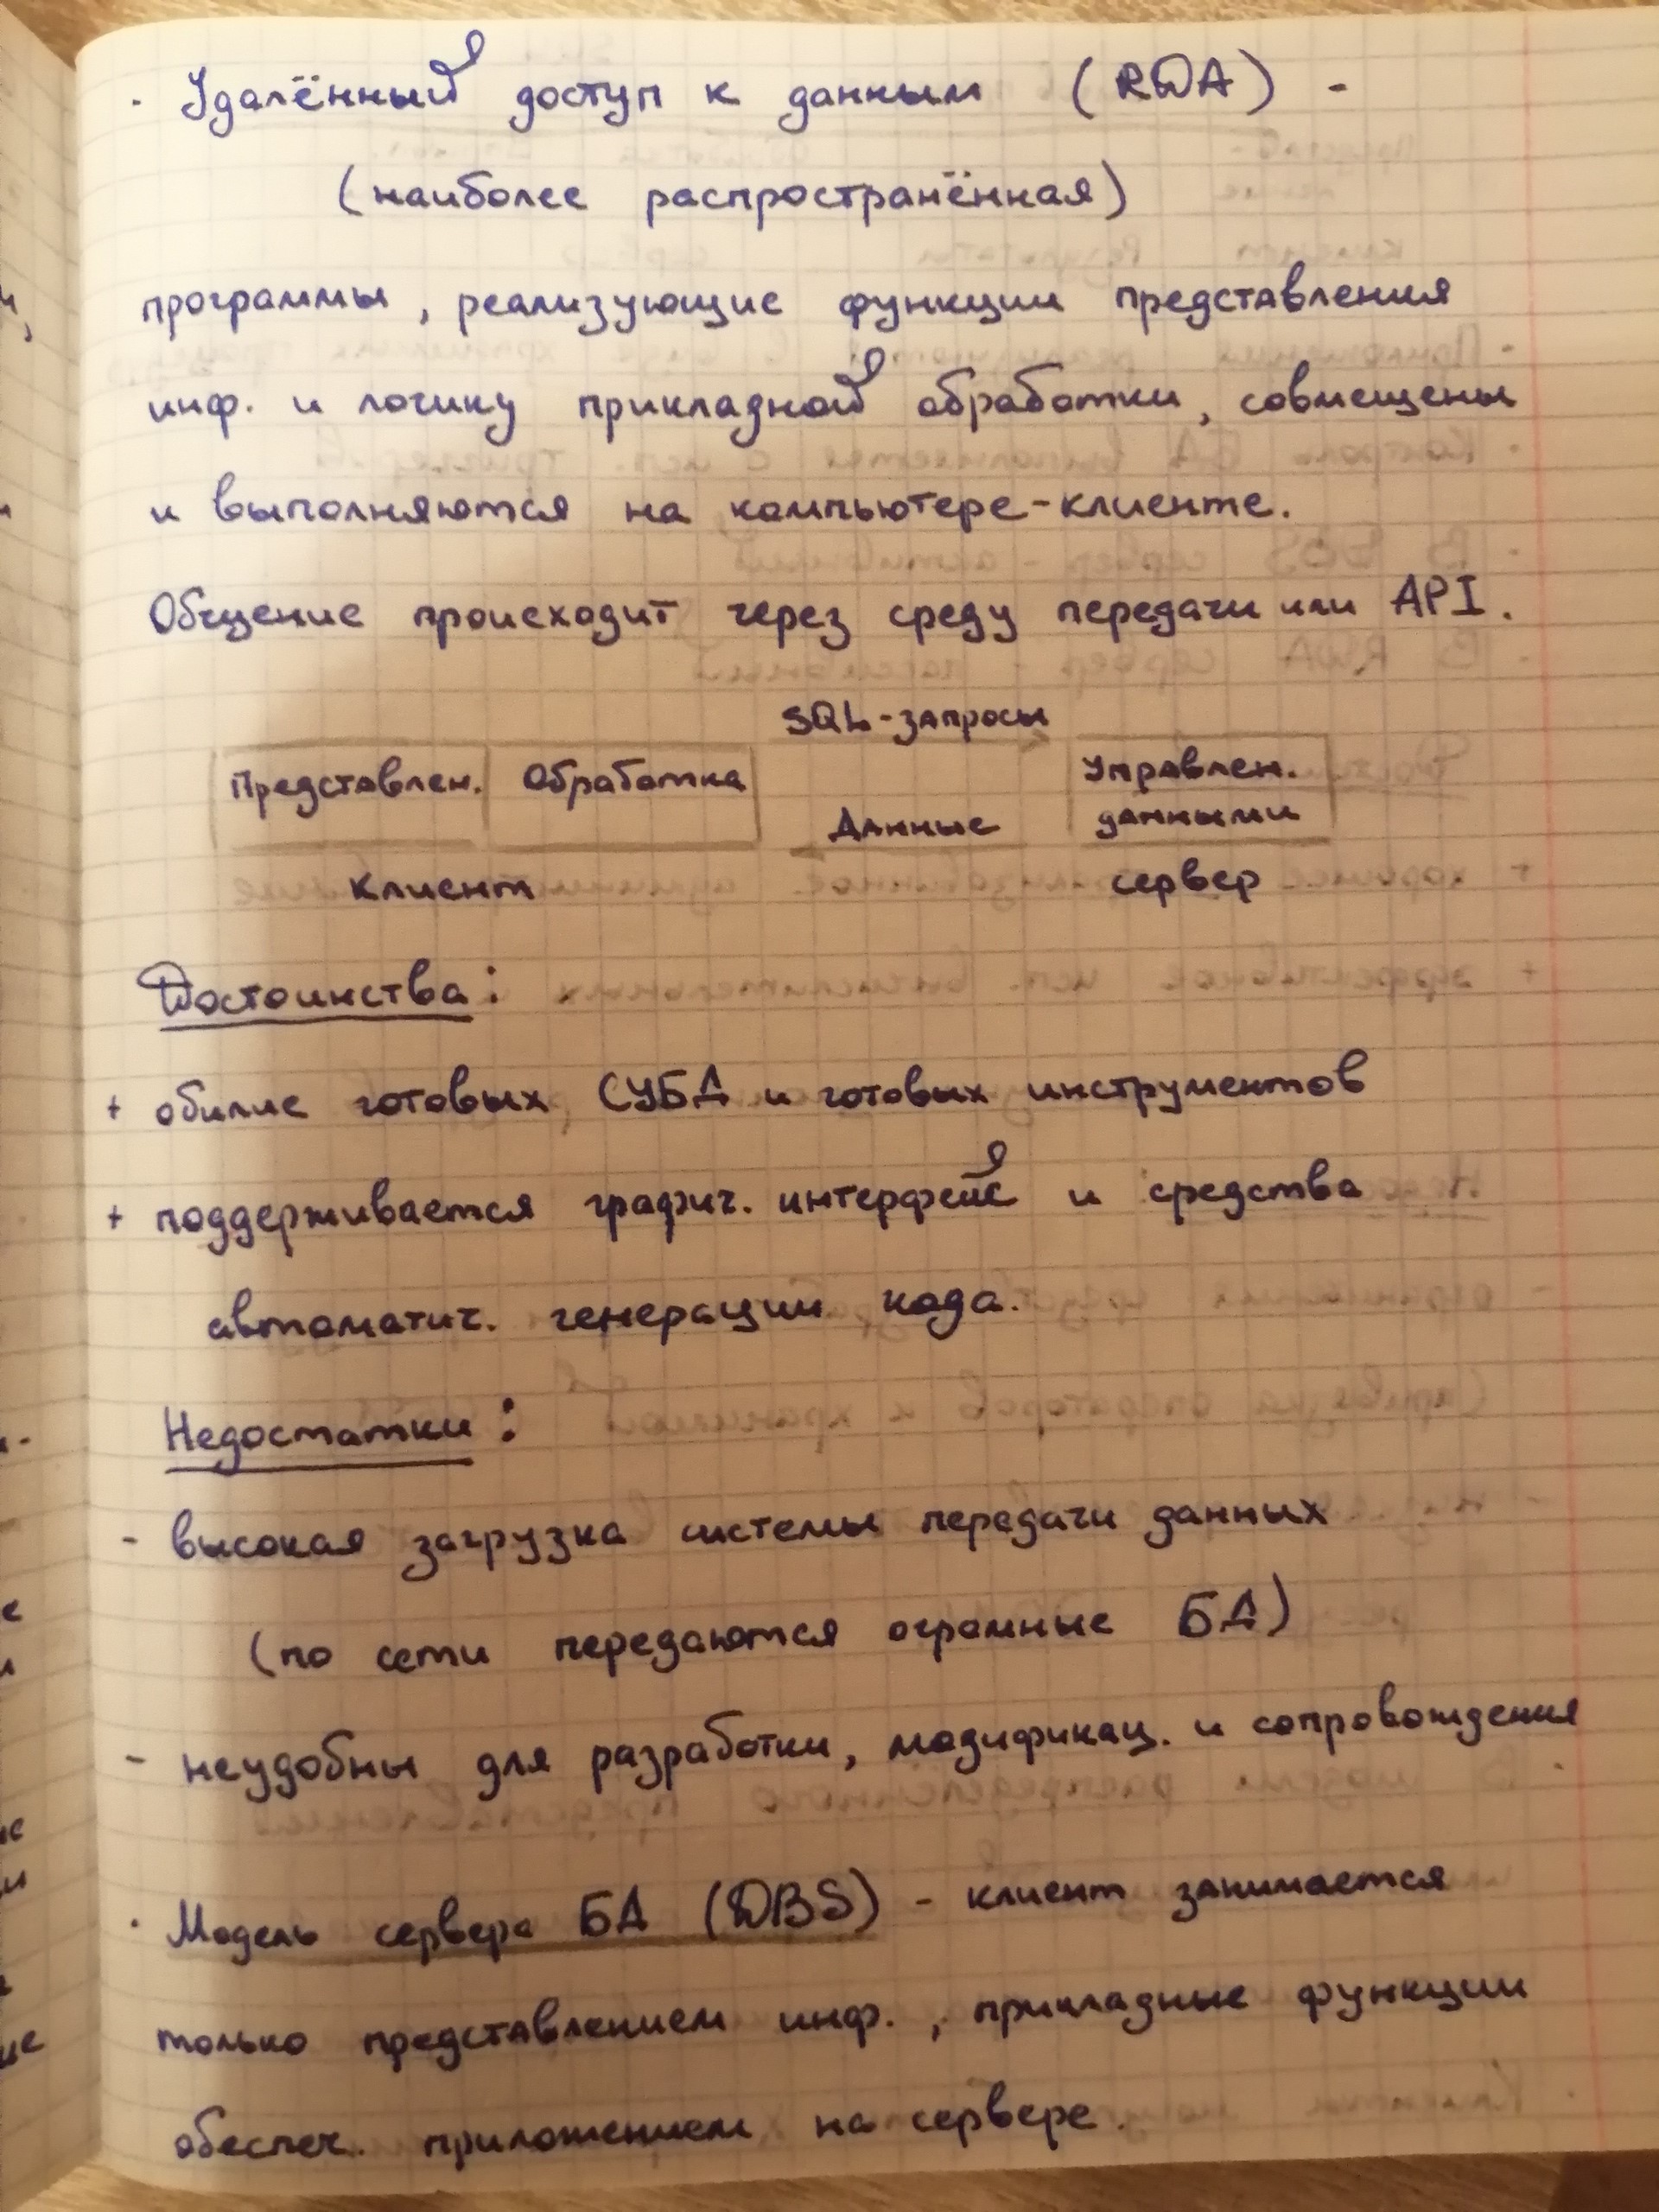 · Удалённый доступ к данным (RDA) -
(наиболее распространённая)
программы, реализующие функции представления
инф. и логику прикладной обработки, совмещены
и выполняются на компьютере-клиенте.
Общение происходит через среду передачи или API.
SQL-запросы
Представлен. Обработка Управлен.
Данные данными
клиент сервер
Достоинства:
+ обилие готовых СУБД и готовых инструментов
+ поддерживается графич. интерфейс и средства
автоматич. генерации кода.
Недостатки:
- высокая загрузка системы передачи данных
(по сети передаются огромные БД)
- неудобны для разработки, модификац. и сопровождения
· Модель сервера БД (DBS) - клиент занимается
только представлением инф., прикладные функции
обеспеч. приложением на сервере.